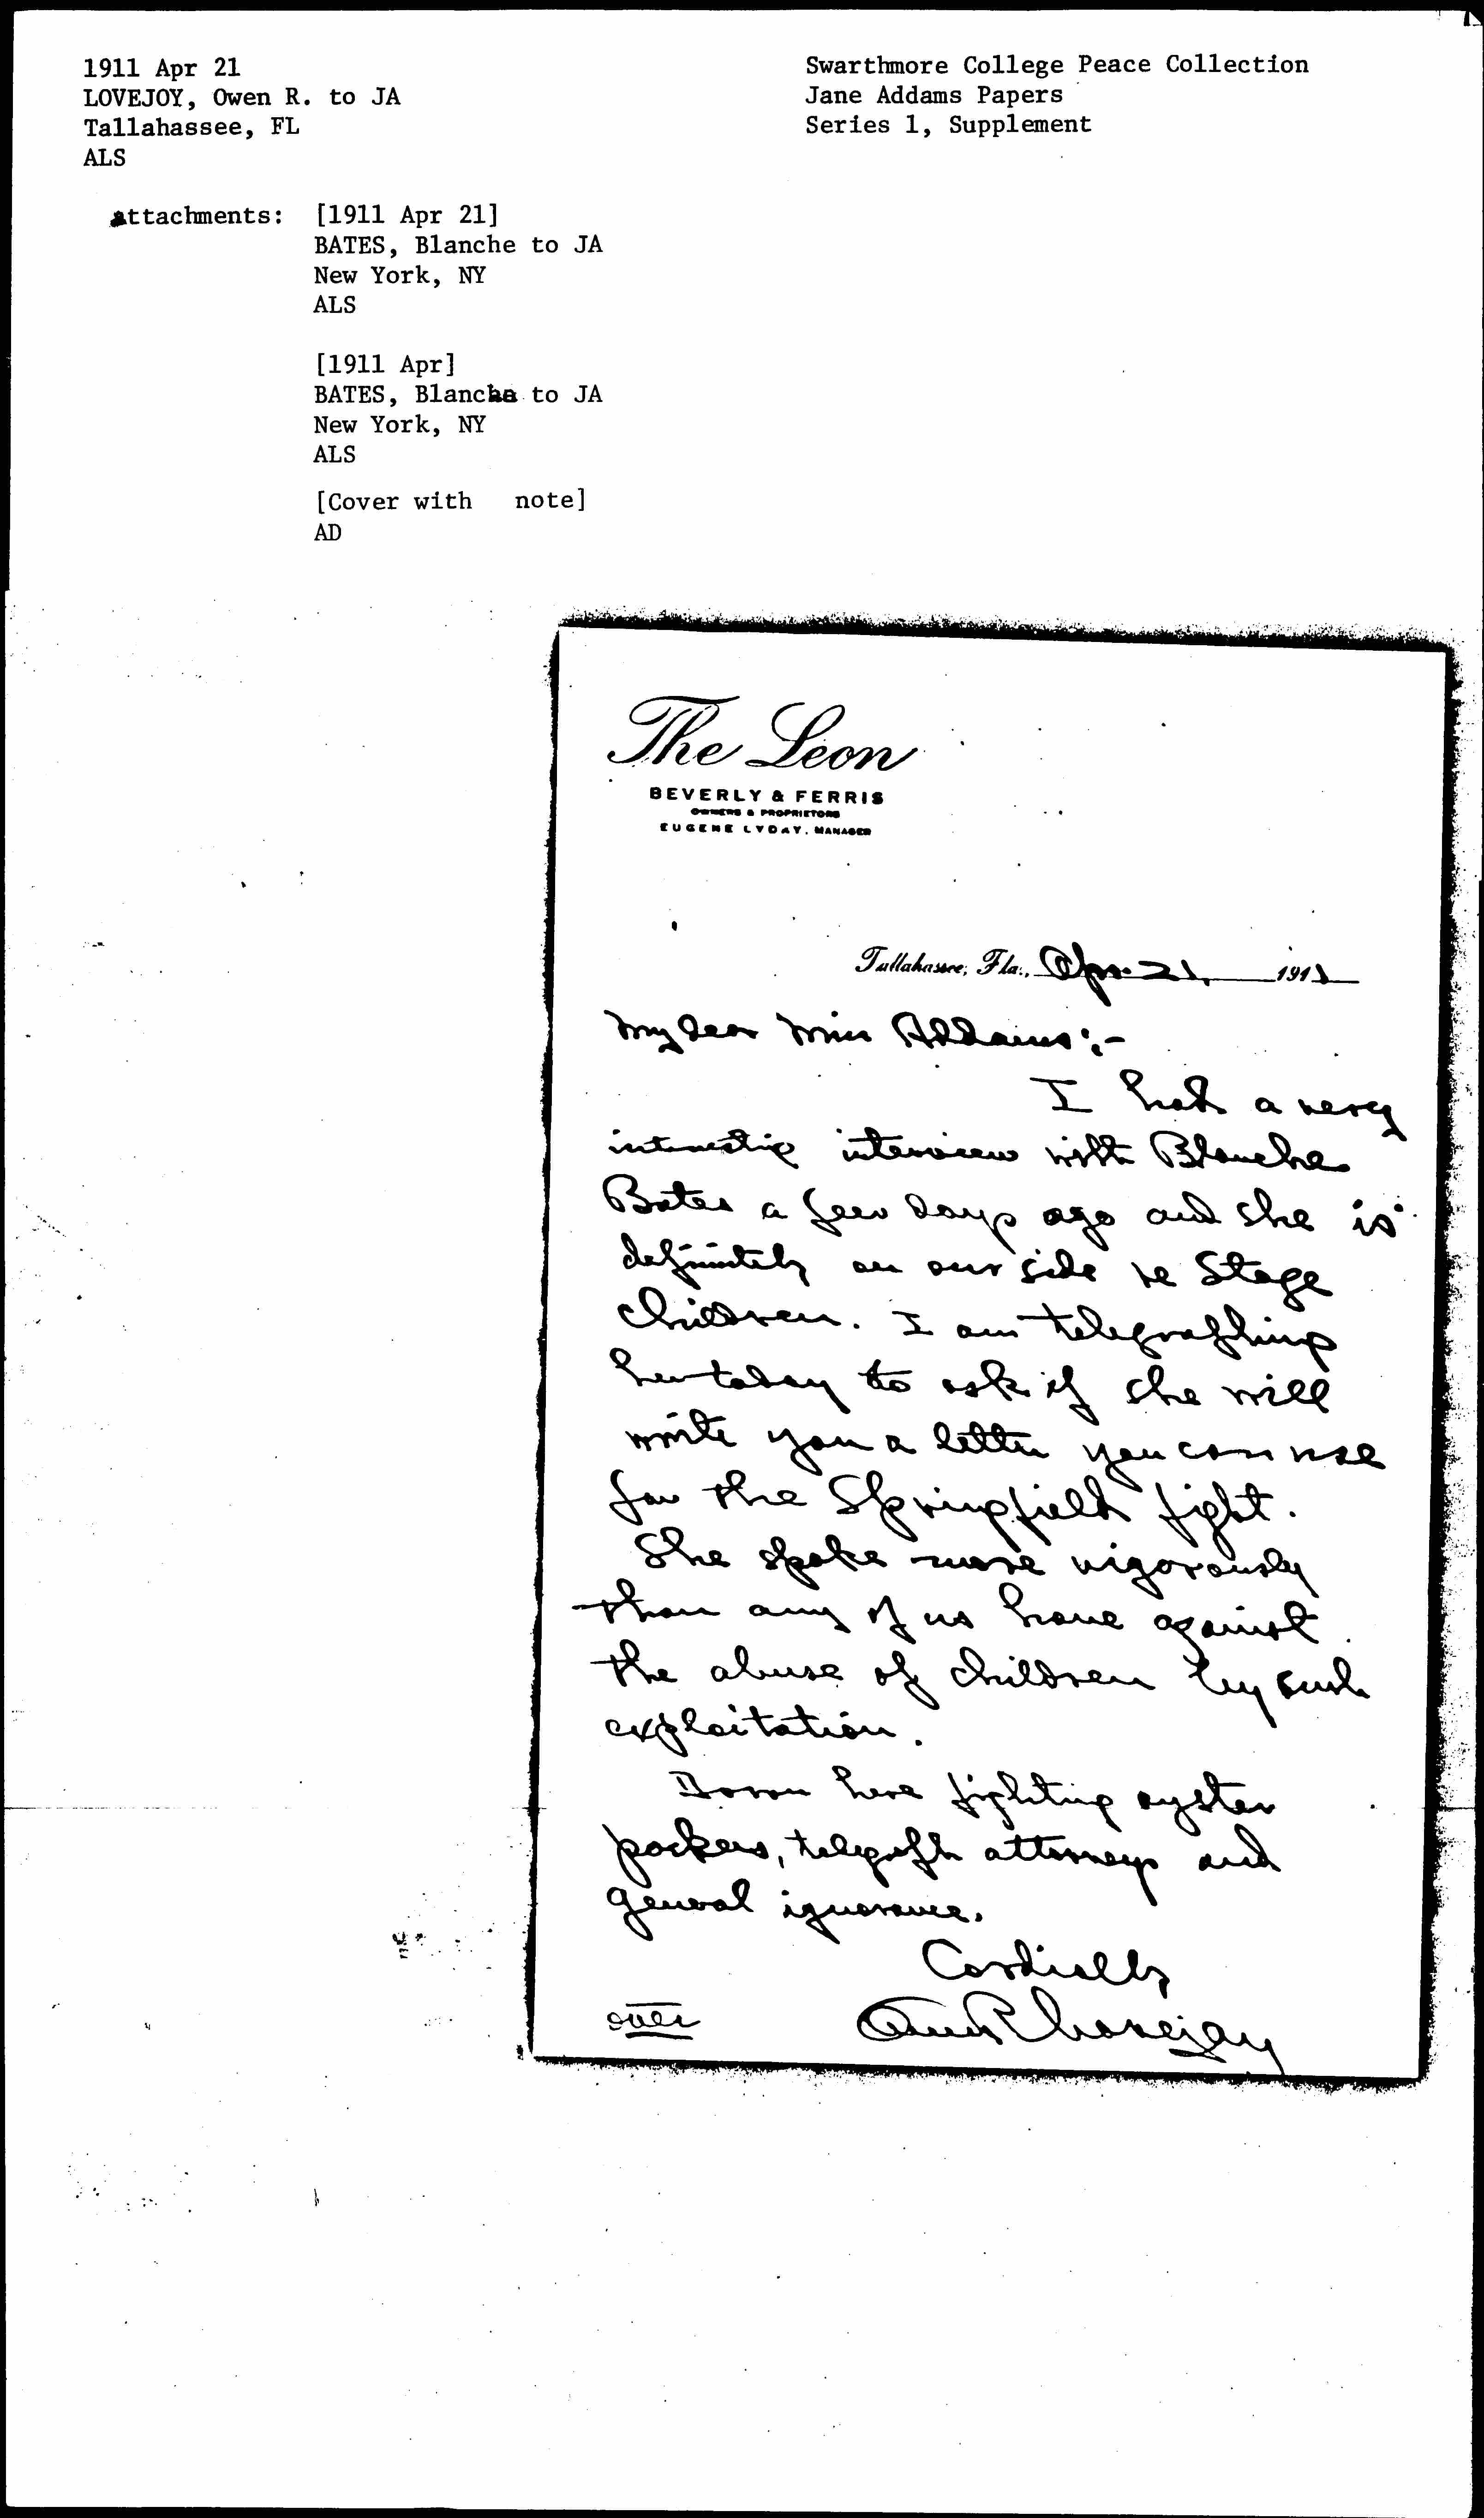 1911 Apr 21
LOVEJOY, Owen R. to JA
Tallahassee, FL
ALS
Swarthmore College Peace Collection
Jane Addams Papers
Series 1, Supplement
attachments: [1911 Apr 21]
BATES, Blanche to JA
New York, NY
ALS
[1911 Apr]
BATES, Blanche to JA
New York, NY
ALS
[Cover with note]
AD
The Leon
BEVERLY & FERRIS
OWNERS & PROPRIETORS
EUGENE LYDAY, MANAGER
Tallahassee, Fla., Apr. 21, 1911
My dear Miss Addams:-
I had a very
interesting interview with Blanche
Bates a few days ago and she is
definitely on our side re Stage
children. I am telegraphing
her today to ask if she will
write you a letter you can use
for the Springfield fight.
She spoke more vigorously
than any of us have against
the abuse of children by such
exploitation.
Down here fighting oyster
packers, telegraph attorneys and
general ignorance.
Cordially
Owen R Lovejoy
over